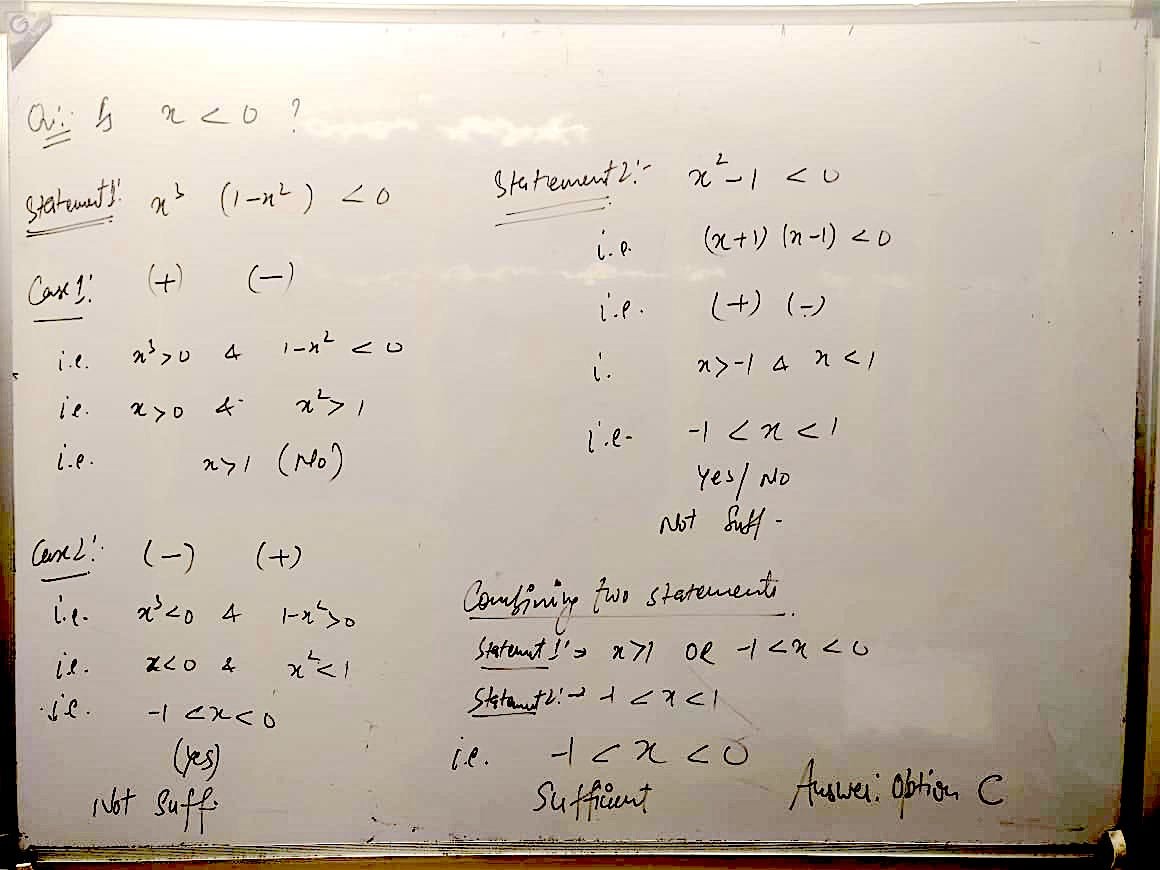 Q:- Is x < 0 ?
Statement 1:- x³ (1-x²) < 0
Case 1:- (+) (-)
i.e. x³>0 & 1-x² < 0
i.e. x>0 & x²>1
i.e. x>1 (No)
Case 2:- (-) (+)
i.e. x³<0 & 1-x²>0
i.e. x<0 & x²<1
i.e. -1 <x<0
(Yes)
Not Suff.
Statement 2:- x²-1 < 0
i.e. (x+1) (x-1) <0
i.e. (+) (-)
i. x>-1 & x<1
i.e- -1 <x <1
Yes/ No
Not Suff-
Combining two statements
Statement 1:→ x>1 OR -1<x<0
Statement 2:→ -1 <x<1
i.e. -1 < x < 0
Sufficient
Answer: Option C